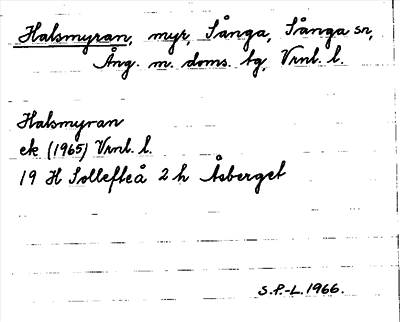 Halsmyran, myr, Sånga, Sånga sn,
Ång. m. doms. bg, Vrnl. l.
Halsmyran
ek (1965) Vrnl. l.
19 H Sollefteå 2 h Åsberget
S.P.-L. 1966.